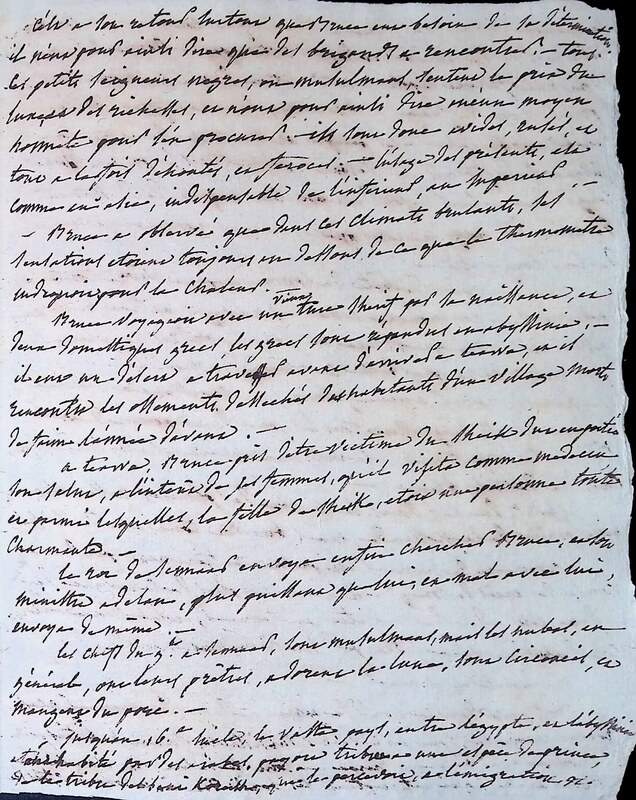 c'est a son retour surtout que Bruce eut besoin de sa détermination
il n'eut pour ainsi dire que des brigands a rencontrer — tous
ces petits seigneurs negres, ou musulmans, sentent le prix du
luxe, des richesses, et n'ont pour ainsi dire aucun moyen
honnête pour s'en procurer. — ils sont donc avides, rusés, et
tout a la fois éhontés, et feroces. — l'usage des présents, est
comme en asie, indispensable de l'inferieur, au superieur
— Bruce a observé que dans ces climats brulants, les
sensations etoient toujours au dessous de ce que le thermometre
indiquoit pour la chaleur.
Bruce voyageoit avec un vieux turc sherif par sa naissance, et
deux domestiques grecs, les grecs sont répandus en abyssinie, —
il eut un désert a traverser avant d'arriver a teawa, et il
rencontra les ossements desséchés des habitants d'un village morts
de faim l'année d'avant. —
a teawa, Bruce prêt d'etre victime du sheik
son salut, a l'interêt de ses femmes, qu'il visita comme medecin
et parmi lesquelles, la fille du sheik, etoit une personne toute
charmante. —
le roi de sennaar envoya enfin chercher Bruce, et son
ministre adelan, plus puissant que lui, et mal avec lui,
envoya de même. —
les chefs du g.t a sennaar, sont musulmans, mais les nubas, en
général, ont leurs prêtres, adorent la lune, sont circoncis, et
mangent du porc. —
jusqu'au 16.e siecle le vaste pays, entre l'egypte, et l'abyssinie
etoit habité par des arabes, payoit tribut a une espece de prince,
de la tribu des beni Koreish, que